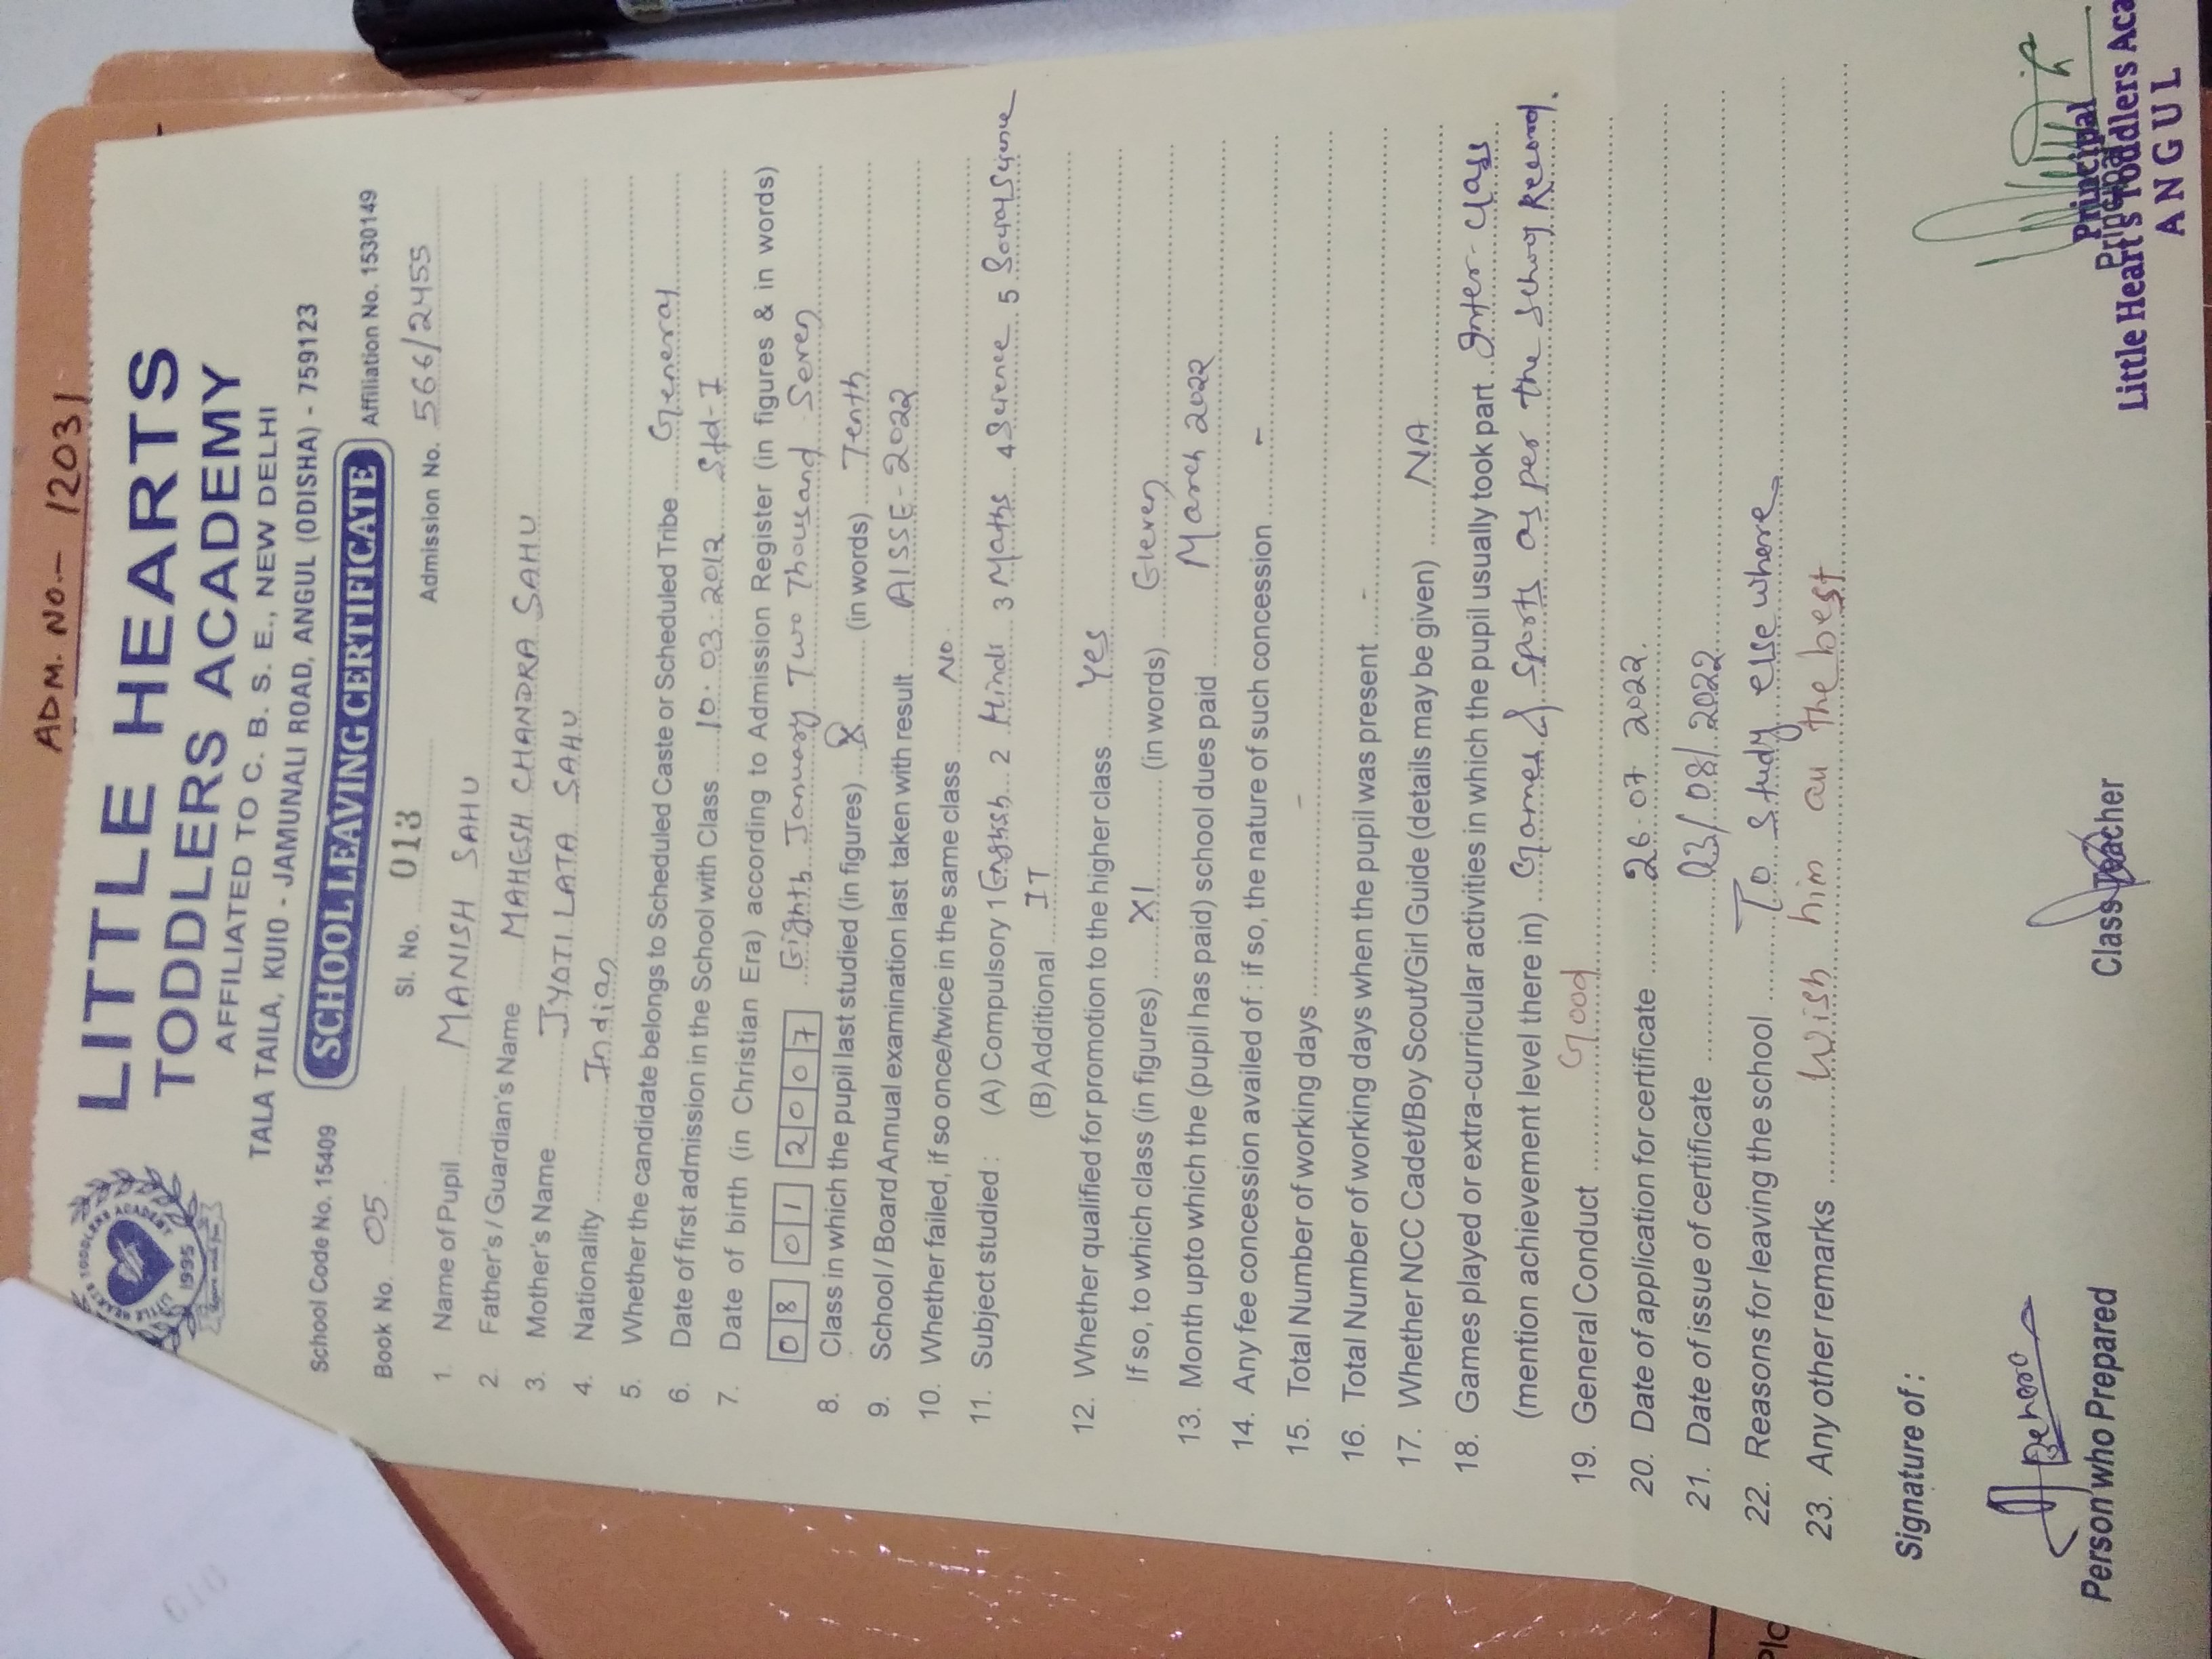 ADM. No.- 12031
LITTLE HEARTS
TODDLERS ACADEMY
AFFILIATED TO C. B. S. E., NEW DELHI
TALA TAILA, KUIO - JAMUNALI ROAD, ANGUL (ODISHA) - 759123
LITTLE HEARTS TODDLERS ACADEMY
1995
School Code No. 15409 SCHOOL LEAVING CERTIFICATE Affiliation No. 1530149
Book No. 05 Sl. No. 013 Admission No. 566/2455
1. Name of Pupil MANISH SAHU
2. Father's / Guardian's Name MAHESH CHANDRA SAHU
3. Mother's Name JYOTI LATA SAHU
4. Nationality Indian
5. Whether the candidate belongs to Scheduled Caste or Scheduled Tribe General
6. Date of first admission in the School with Class 10.03.2012 Std-I
7. Date of birth (in Christian Era) according to Admission Register (in figures & in words)
08 01 2007 Eighth January Two Thousand Seven
8. Class in which the pupil last studied (in figures) X (in words) Tenth
9. School / Board Annual examination last taken with result AISSE-2022
10. Whether failed, if so once/twice in the same class No
11. Subject studied : (A) Compulsory 1 English 2 Hindi 3 Maths 4 Science 5 Social Science
(B) Additional IT
12. Whether qualified for promotion to the higher class Yes
If so, to which class (in figures) XI (in words) Eleven
13. Month upto which the (pupil has paid) school dues paid March 2022
14. Any fee concession availed of : if so, the nature of such concession -
15. Total Number of working days -
16. Total Number of working days when the pupil was present -
17. Whether NCC Cadet/Boy Scout/Girl Guide (details may be given) NA
18. Games played or extra-curricular activities in which the pupil usually took part Inter-Class
(mention achievement level there in) Games & sports as per the school Record.
19. General Conduct Good
20. Date of application for certificate 26.07.2022.
21. Date of issue of certificate 03/08/2022
22. Reasons for leaving the school To study else where
23. Any other remarks Wish him all the best
Signature of :
Person who Prepared Class Teacher Principal
Principal
Little Heart's Toddlers Aca
ANGUL